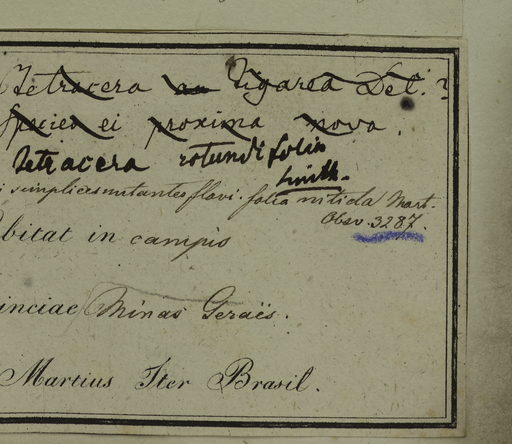 Tetracera an Tigarea Del.?
Species ei proxima nova.
Tetracera rotundifolia
Smith.
i simplices nutantes flavi. folia nitida Mart.
Obsv. 3287.
bitat in campis
inciae Minas Geraës.
Martius Iter Brasil.